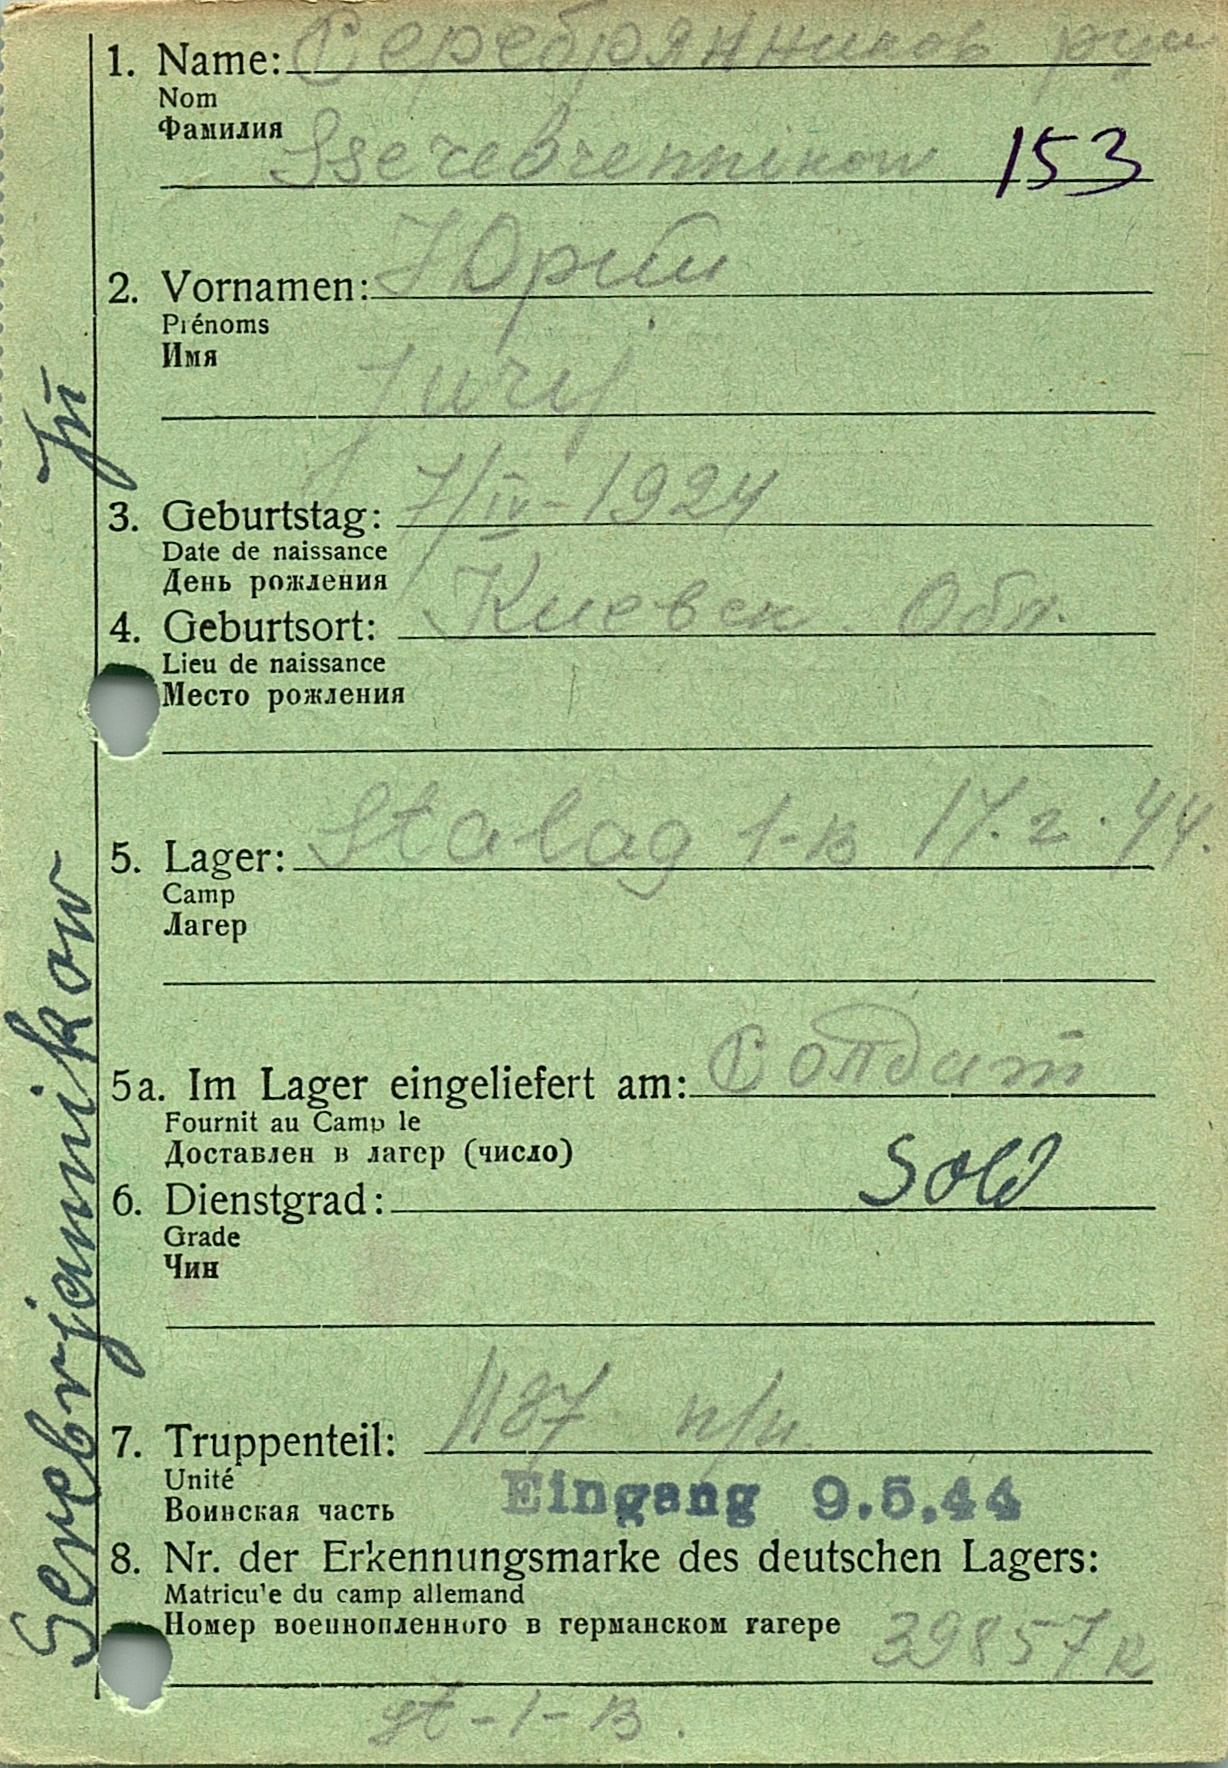 1. Name: Серебрянников рус
Nom
Фамилия
Sserebrennikow 153
2. Vornamen: Юрий
Prénoms
Имя
Jurij
3. Geburtstag: 7/IV-1924
Date de naissance
День рождения
4. Geburtsort: Киевск. Обл.
Lieu de naissance
Место рождения
5. Lager: Stalag 1-B 17.2.44.
Camp
Лагер
5a. Im Lager eingeliefert am: Солдат
Fournit au Camp le
Доставлен в лагер (число)
6. Dienstgrad: Sold
Grade
Чин
7. Truppenteil: 1187 п/п.
Unité
Воинская часть
Eingang 9.5.44
8. Nr. der Erkennungsmarke des deutschen Lagers:
Matricu'e du camp allemand
Номер военнопленного в германском гагере 39857 R
st-1-B.
Serebrjannikow Ju